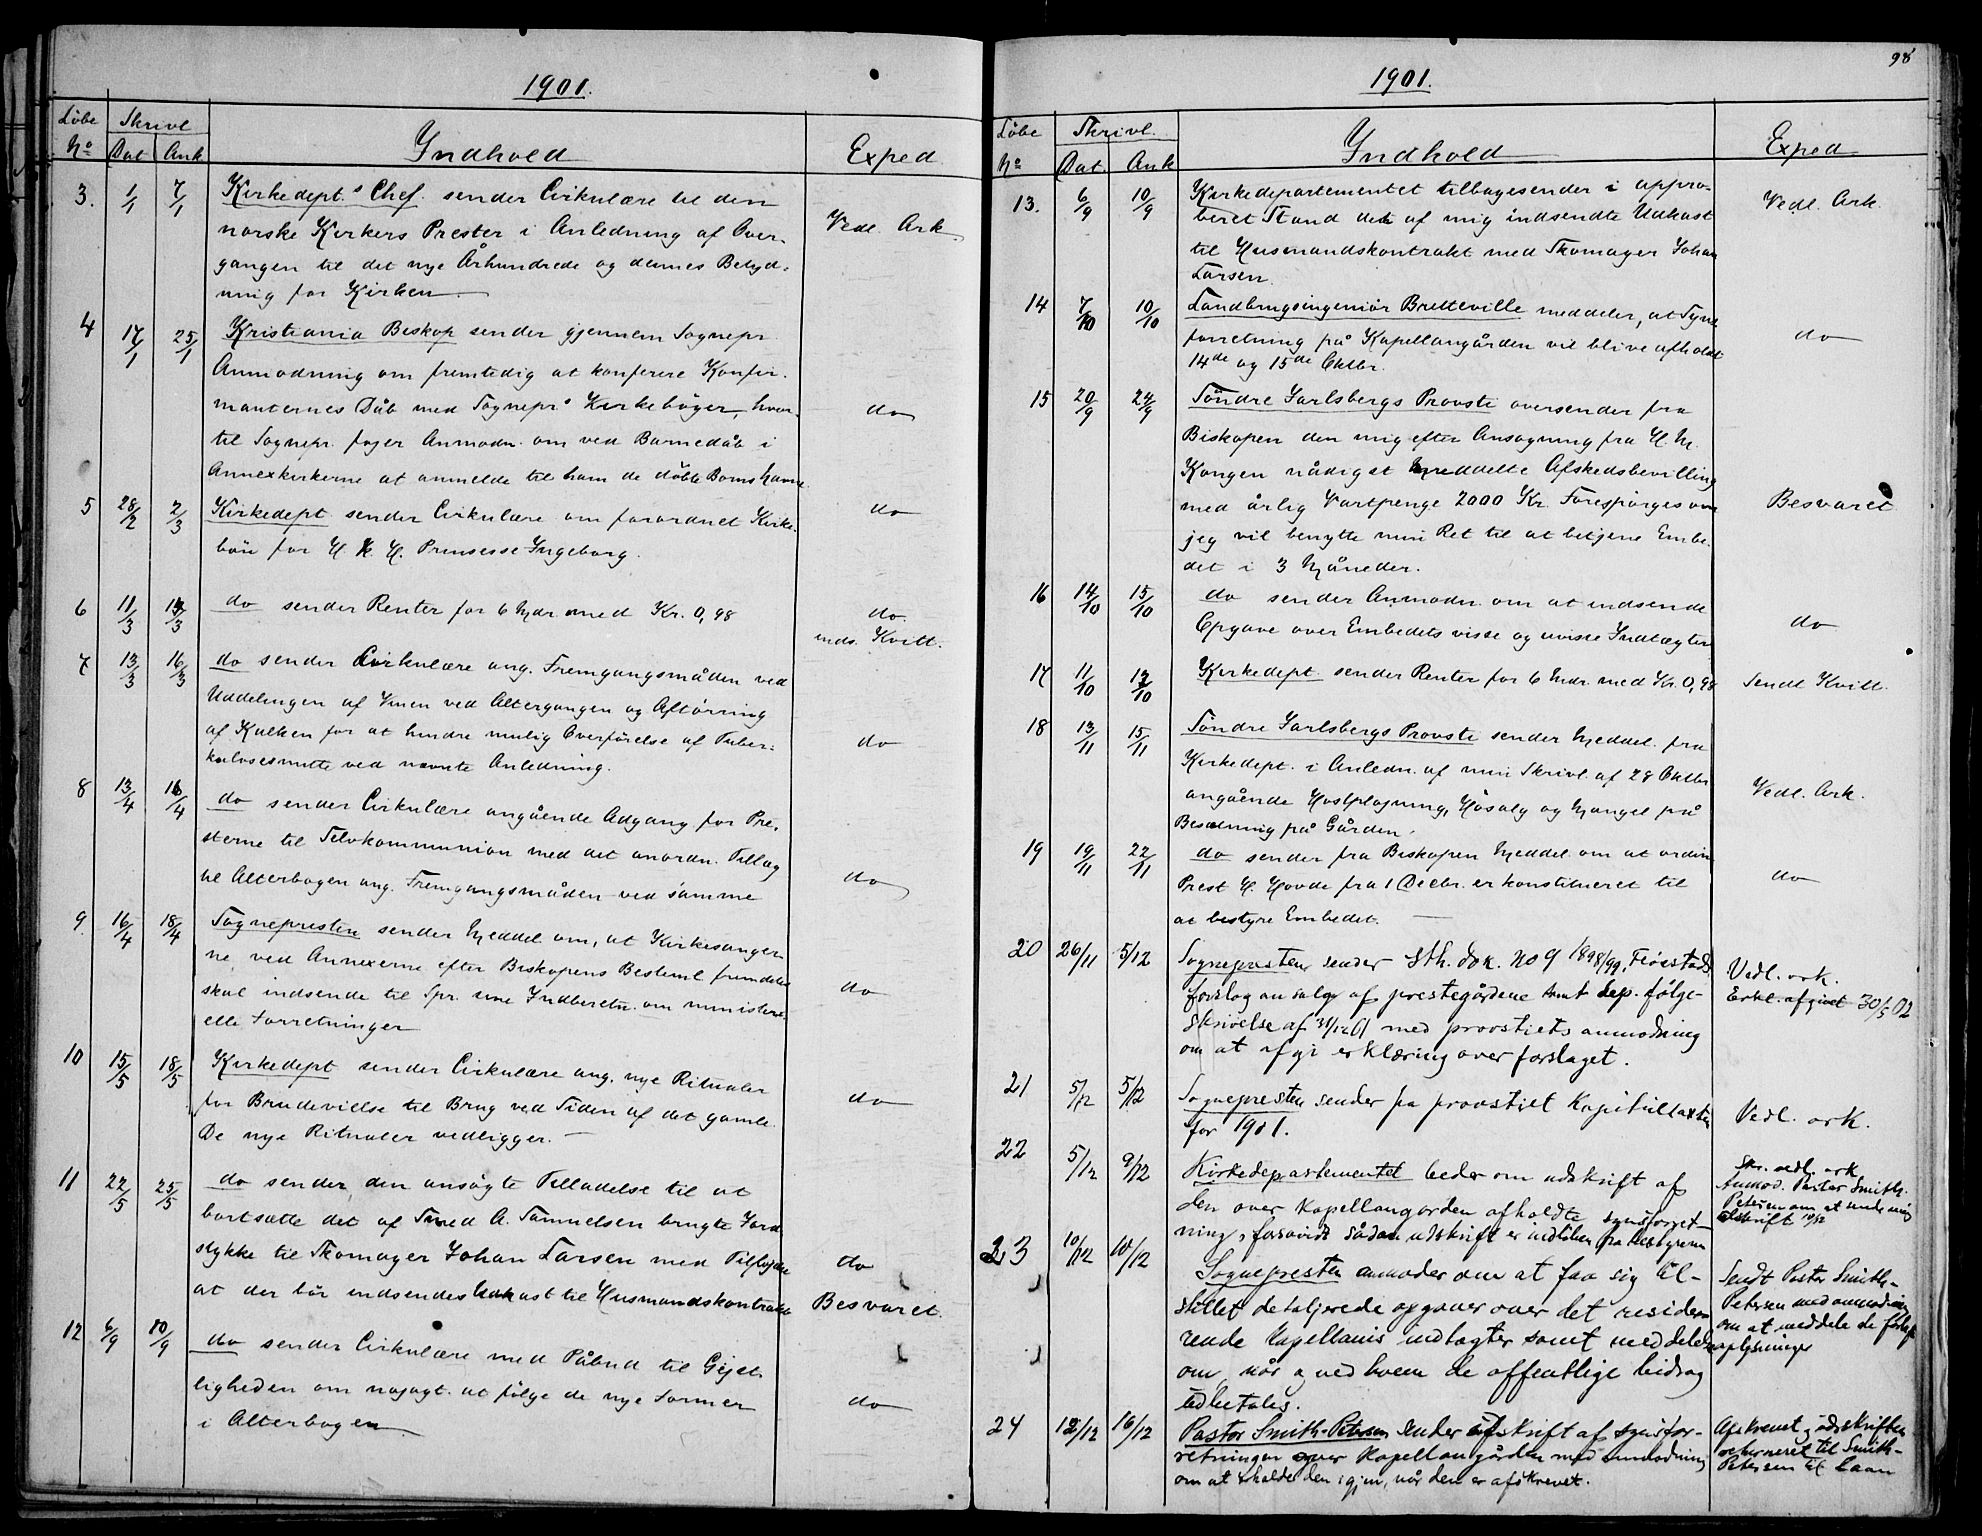 1901.
Löbe Skrivl
No Dat Ank Indhold Exped
3. 1/1 7/1 Kirkedept.s Chef. sender Cirkulære til den
norske Kirkers Prester i Anledning af Over- Vedl. Ark.
gangen til det nye Århundrede og dennes Betyd-
ning for Kirken.
4 17/1 25/1 Kristiania Biskop sender gjennem Sognepr.
Anmodning om fremtidig at konferere Konfir-
manternes Dåb med Sognepr.s Kirkebøger, hvor- do
til Sognepr. føjer Anmodn. om ved Barnedåb i
Annexkirkerne at anmelde til ham de døbte Børns Navne
5 28/2 2/3 Kirkedept. sender Cirkulære om forordnet Kirke- do
bøn for H. K. H. Prinsesse Ingeborg.
6 11/3 13/3 do sender Renter for 6 Mdr. med Kr. 0,98 do.
inds. Kvitt.
7 13/3 16/3 do sender Cirkulære ang. Fremgangsmåden ved
Uddelingen af Vinen ved Altergangen og Aftørring
af Kalken for at hindre mulig Overførelse af Tuber- do
kulosesmitte ved nævnte Anledning.
8 13/4 16/4 do sender Cirkulære angående Adgang for Pre-
sterne til Selvkommunion med det anordn. Tillæg
til Alterbogen ang. Fremgangsmåden ved samme do
9. 16/4 18/4 Sognepresten sender Meddel om, at Kirkesanger-
ne ved Annexerne efter Biskopens Besteml. fremdeles
skal indsende til Spr. sine Indberetn. om ministeri- do
elle Forretninger
10 15/5 18/5 Kirkedept sender Cirkulære ang. nye Ritualer
for Brudevielse til Brug ved Siden af det gamle. do
De nye Ritualer vedligger.
11 22/5 25/5 do sender den ansøgte Tilladelse til at
bortsætte det af Smed A. Samuelsen brugte Jord
stykke til Skomager Johan Larsen med Tilføjende do
at der bör indsendes Udkast til Husmandskontrakt Besvaret.
12 6/9 10/9 do sender Cirkulære med Påbud til Gejst-
ligheden om nøjagt. at følge de nye Former do
i Alterbogen
98
1901.
Löbe Skrivl.
No Dat. Ank Indhold Exped
13. 6/9 10/9 Kirkedepartementet tilbagesender i appro- Vedl. Ark.
beret Stand det af mig indsendte Udkast
til Husmandskontrakt med Skomager Johan
Larsen.
14 7/10 10/10 Landbrugsingeniör Bretteville meddeler, at Syns
forretning på Kapellangården vil blive afholdt do
14de og 15de Oktbr.
15 20/9 24/9 Söndre Jarlsbergs Provsti oversender fra
Biskopen den mig efter Ansøgning fra H. M.
Kongen nådigst meddelte Afskedsbevilling
med årlig Vartpenge 2000 Kr. Forespörges om Besvaret
jeg vil benytte min Ret til at betjene Embe-
det i 3 Måneder.
16 14/10 15/10 do sender Anmodn. om at indsende
Opgave over Embedets visse og uvisse Indtægter do
17 11/10 12/10 Kirkedept. sender Renter for 6 Mdr. med Kr. 0,98 Sendt Kvitt.
18 13/11 15/11 Söndre Jarlsbergs Provsti sender Meddel. fra
Kirkedept. i Anledn. af min Skrivl. af 28 Oktbr
angående Høstpløjning, Høsalg og Mangel på Vedl. Ark.
Besætning på Gården.
19 19/11 22/11 do sender fra Biskopen Meddel. om at ordin
Prest H. Hovde fra 1 Decbr. er konstitueret til do
at bestyre Embedet.
20 26/11 5/12 Sognepresten sender Sth. dok. No 9 1898/99, Fiörestads Vedl. ark.
forslag om salg af prestegårdene samt dep. følge- Erkl. afgivet 30/5 02
skrivelse af 31/12 61 med provstiets anmodning
om at afgi erklæring over forslaget.
21 5/12 5/12 Sognepresten sender fra provstiet Kapiteltaxten Vedl. ark.
for 1901.
22 5/12 9/12 Kirkedepartementet beder om udskrift af Skr. vedl. ark.
den over Kapellangården afholdte synsforret- Anmod. Pastor Smith-
Petersen om at sende mig
ning, forsåvidt sådan udskrift er indløben fra bestyreren udskrift 10/12
23 10/12 10/12 Sognepresten anmoder om at faa sig til- Sendt Pastor Smith-
stillet detaljerede opgaver over det residen- Petersen med anmodning
rende Kapellanis indtægter samt meddelelse om at meddele de forlangte
om, når og ved hvem de offentlige bidrag oplysninger
udbetales.
24 12/12 16/12 Pastor Smith-Petersen sender udskrift af synsfor- Afskrevet, udskriften
retningen over Kapellangården med anmodning returneret til Smith-
om at beholde den igjen, når den er afskrevet. Petersen til Laan